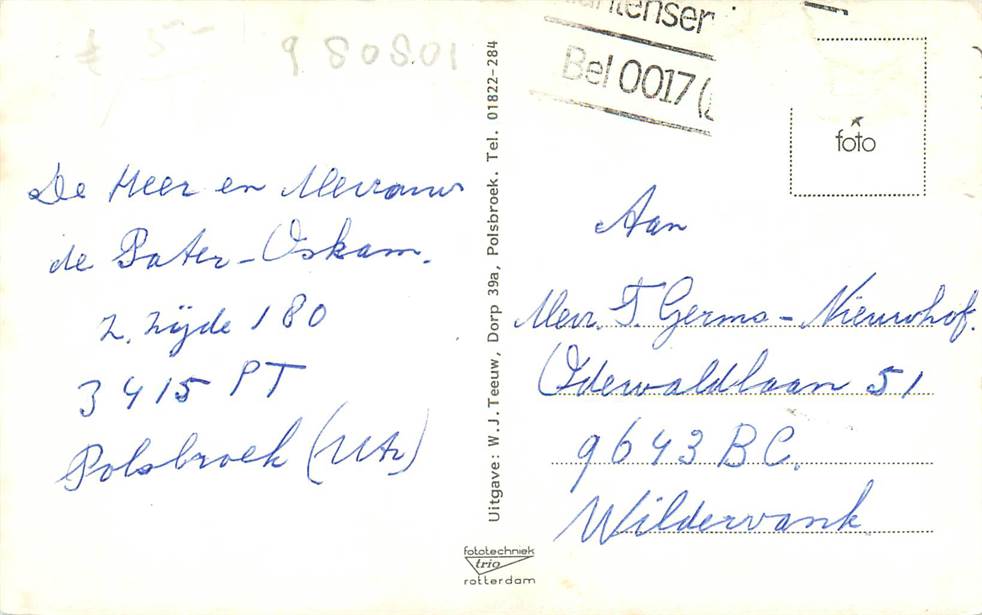 £ 5-
9 80801
De Heer en Mevrouw
de Pater-Oskam.
Z. Zijde 180
3415 PT
Polsbroek (Utr)
Uitgave: W.J. Teeuw, Dorp 39a, Polsbroek. Tel. 01822-284
fototechniek
trio
rotterdam
Bel 0017
foto
Aan
Mevr. T. Germs-Nieuwhof.
Oderwaldlaan 51
9643 BC.
Wildervank